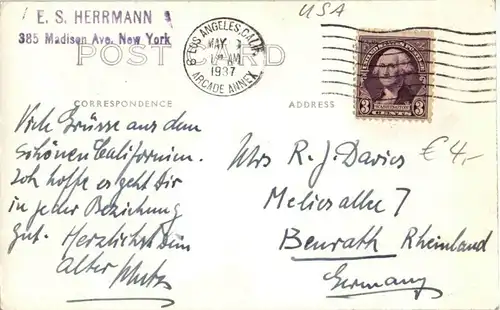 USA
E. S. HERRMANN
385 Madison Ave. New York
POST CARD
LOS ANGELES, CALIF.
MAY
AM
1937
ARCADE ANNEX
UNITED STATES POSTAGE
WASHINGTON
3 CENTS 3
CORRESPONDENCE
ADDRESS
Viele Grüsse aus dem
schönen Californien.
Ich hoffe es geht Dir
in jeder Beziehung
gut. Herzlichst Dein
alter
Mrs R. J. Davies
€ 4,-
Meliesallee 7
Benrath Rheinland
Germany